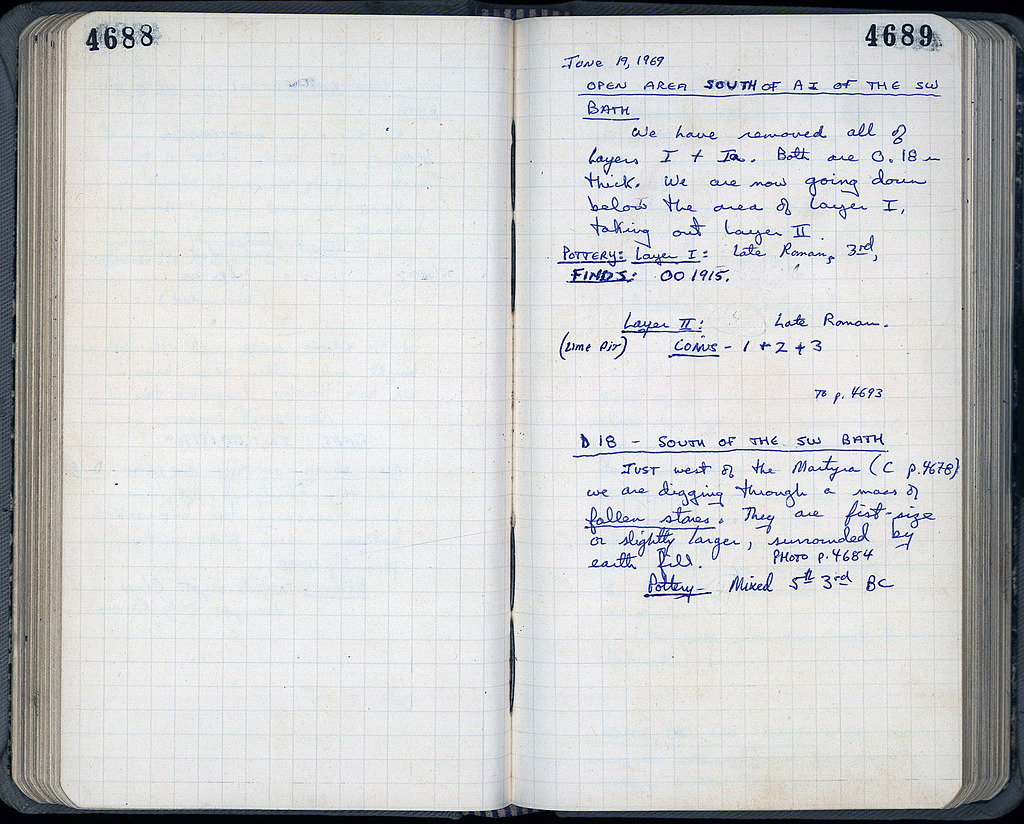 4688
4689
June 19, 1969
OPEN AREA SOUTH OF A I OF THE SW
BATH
We have removed all of
Layers I + Ia. Both are 0.18 m
thick. We are now going down
below the area of Layer I,
taking out Layer II
POTTERY: Layer I: Late Roman, 3rd,
FINDS: OO 1915.
Layer II: Late Roman.
(Lime Pit) COINS - 1 + 2 + 3
To p. 4693
D 18 - SOUTH OF THE SW BATH
JUST west of the Martyra (C p.4678)
we are digging through a mass of
fallen stones. They are fist-size
or slightly larger, surrounded by
earth fill. PHOTO p.4684
Pottery- Mixed 5th 3rd BC